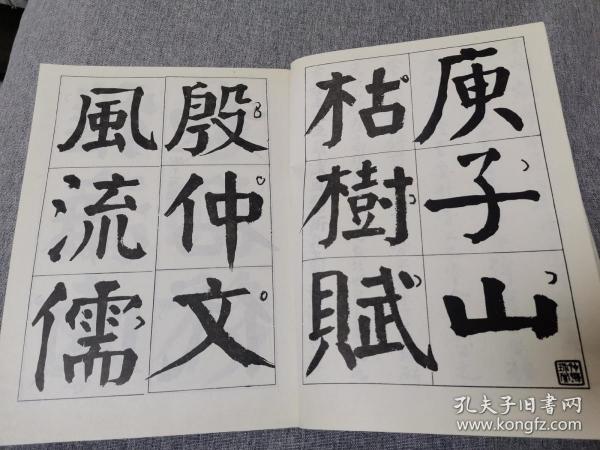 庾子山
枯樹賦
殷仲文
風流儒
孔夫子旧书网
www.kongfz.com